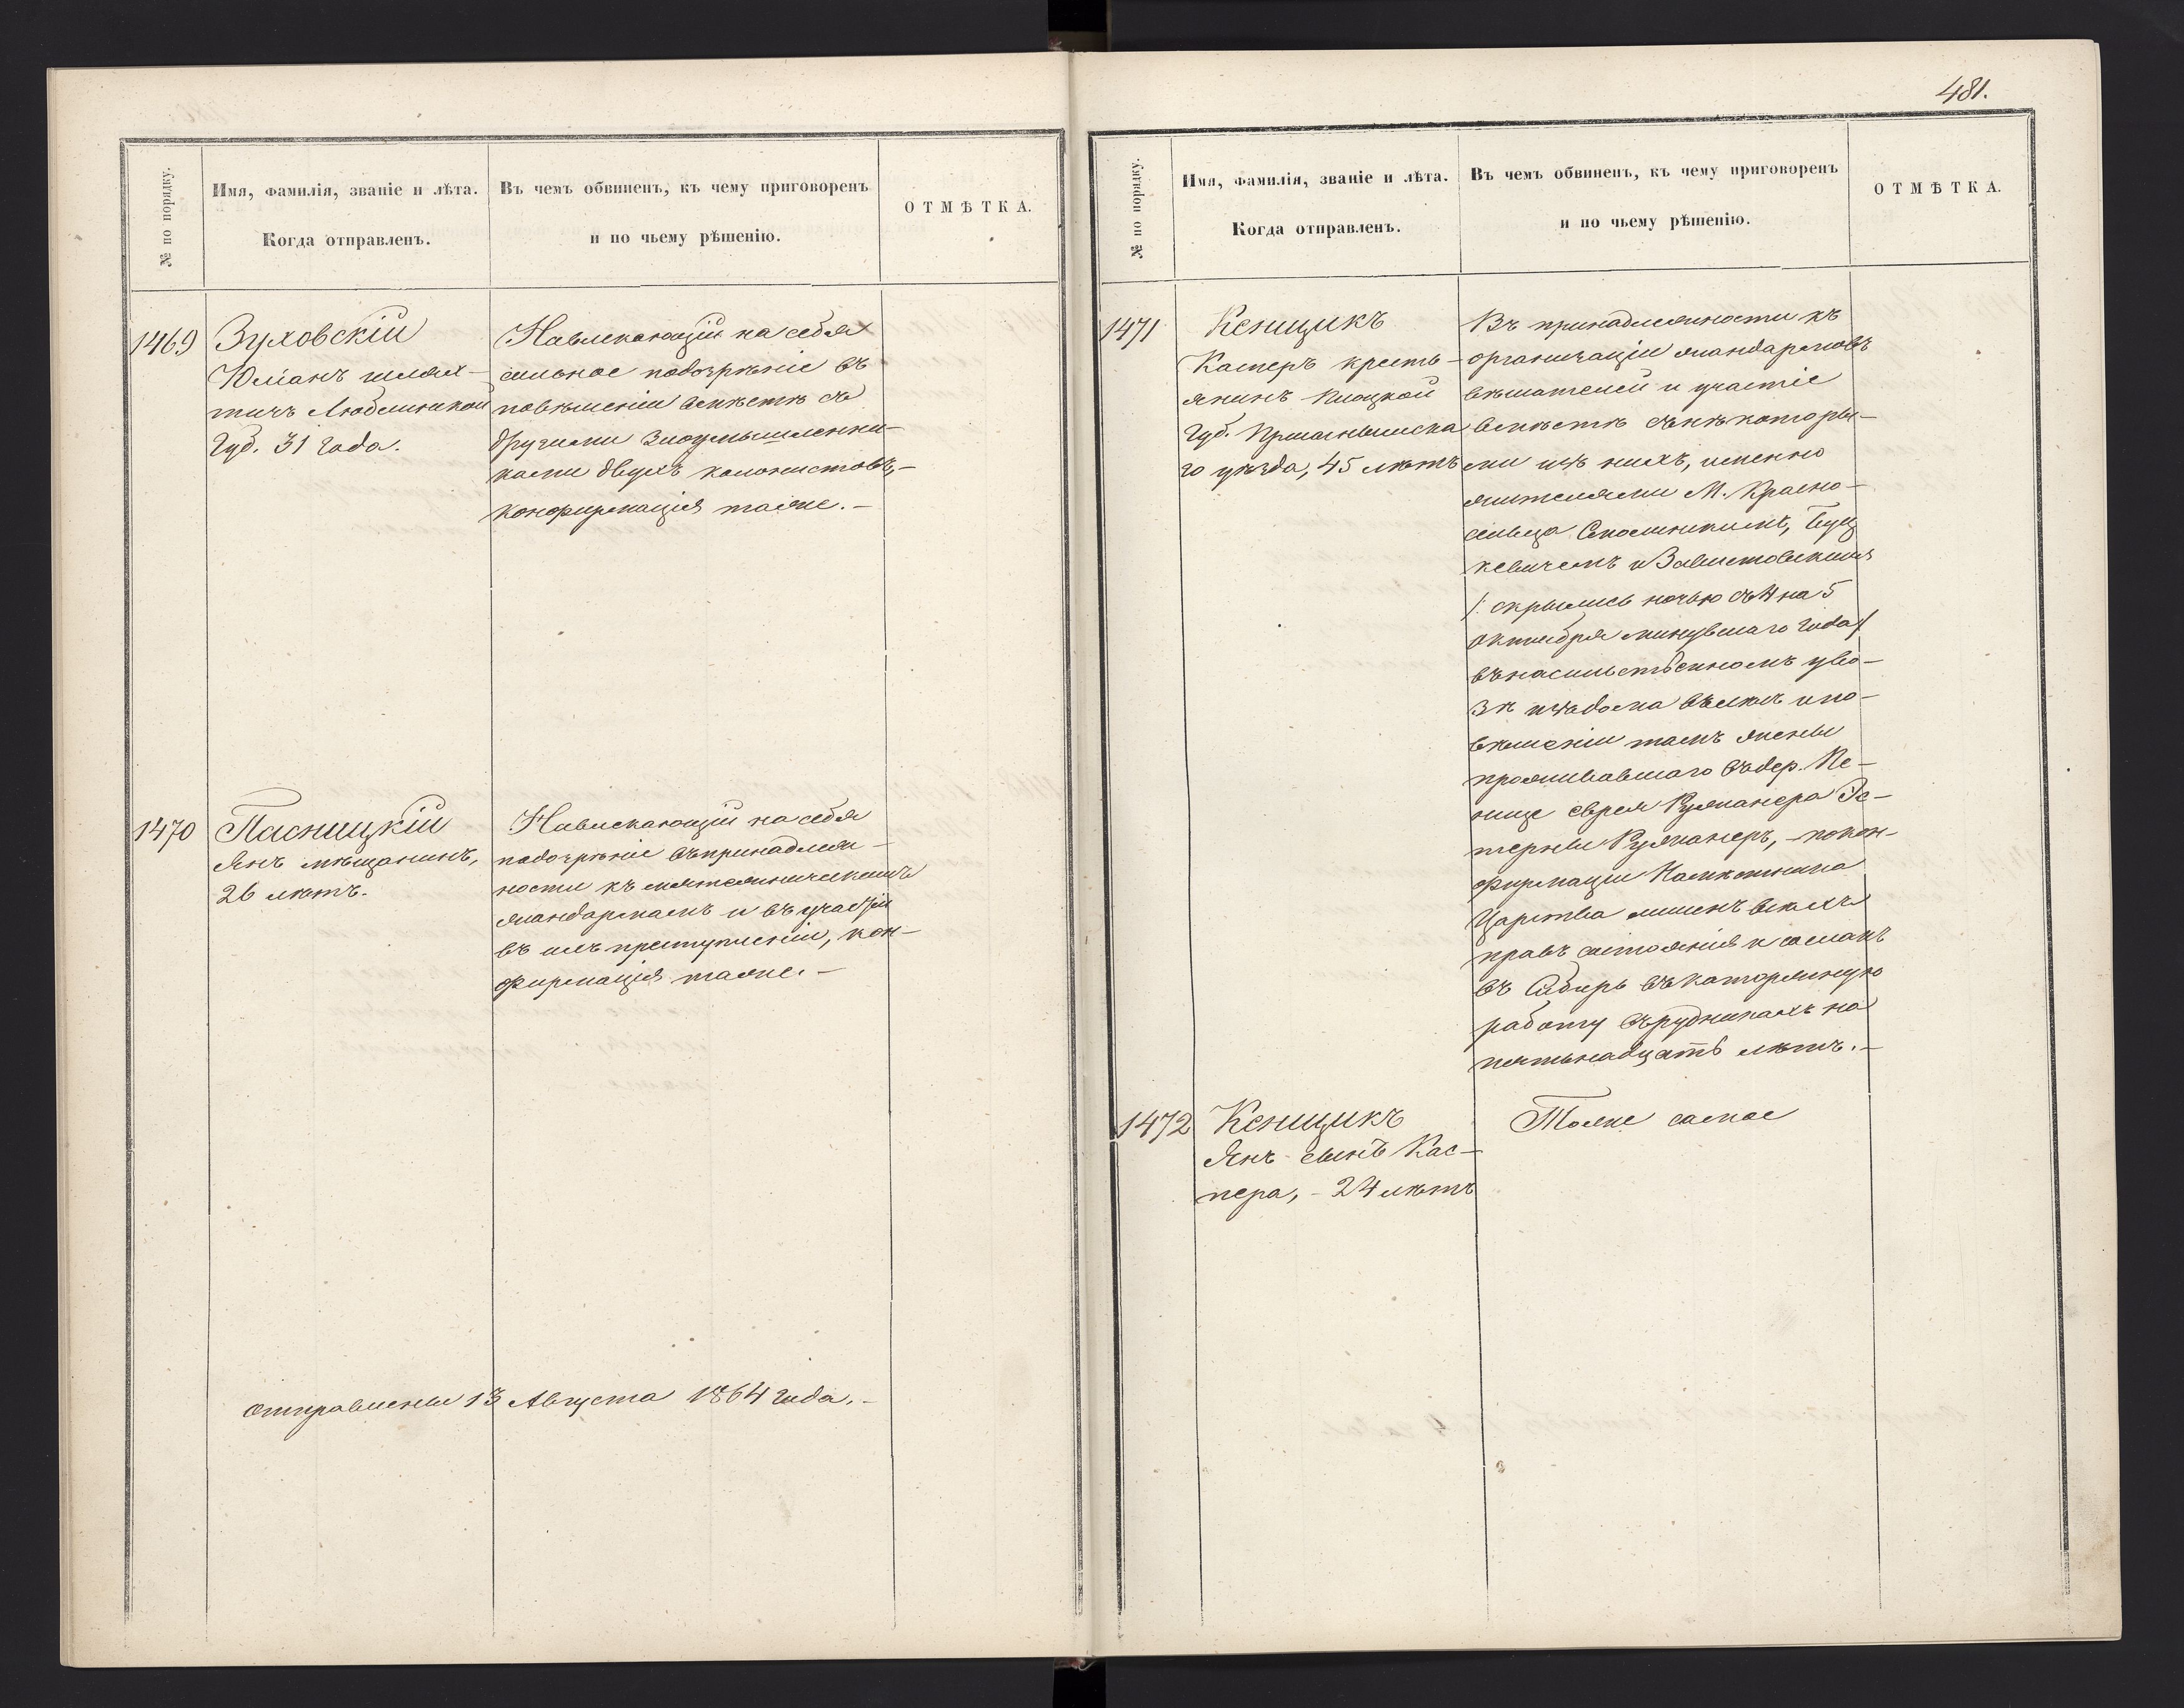 481.
№ по порядку.
Имя, фамилія, званіе и лѣта.
Когда отправленъ.
Въ чемъ обвиненъ, къ чему приговоренъ
и по чьему рѣшенію.
ОТМѢТКА.
1469
Зуховскій
Юліанъ шлях-
тичъ Люблинской
Губ. 31 года.
Навлекающій на себя
сильное подозрѣніе въ
повѣшеніи вмѣстѣ съ
другими злоумышленни-
ками двухъ колонистовъ,-
конфирмація таже.-
1470
Пасницкій
Янъ мѣщанинъ,
26 лѣтъ.
Навлекающій на себя
подозрѣніе въ принадлеж-
ности къ мятежническимъ
жандармамъ и въ участіи
въ ихъ преступленіи, кон-
фирмація таже.-
Отправлены 13 Августа 1864 года.-
№ по порядку.
Имя, фамилія, званіе и лѣта.
Когда отправленъ.
Въ чемъ обвиненъ, къ чему приговоренъ
и по чьему рѣшенію.
ОТМѢТКА.
1471
Кенщикъ
Касперъ кресть-
янинъ Плоцкой
Губ. Пршаснышска
го уѣзда, 45 лѣтъ
Въ принадлежности къ
организаціи жандармовъ
вѣшателей и участіе
вмѣстѣ съ нѣкоторы-
ми изъ нихъ, именно
жителями М. Красно-
сельца Смолинскимъ, Буц
кевичемъ и Завистовскимъ
/: скрылись ночью съ 4 на 5
Октября минувшаго года/
въ насильственномъ уво-
зѣ изъ дома въ лѣсъ и по-
вѣшеніи тамъ жены
проживавшаго въ дер. Пе-
нице еврея Ружанера Эс-
терны Ружанеръ,- по кон-
фирмаціи Намѣстника
Царства лишенъ всѣхъ
правъ состоянія и сосланъ
въ Сибирь въ каторжную
работу въ рудникахъ на
пятьнадцать лѣтъ.-
1472
Кенщикъ
Янъ сынъ Кас-
пера,- 24 лѣтъ
Тоже самое